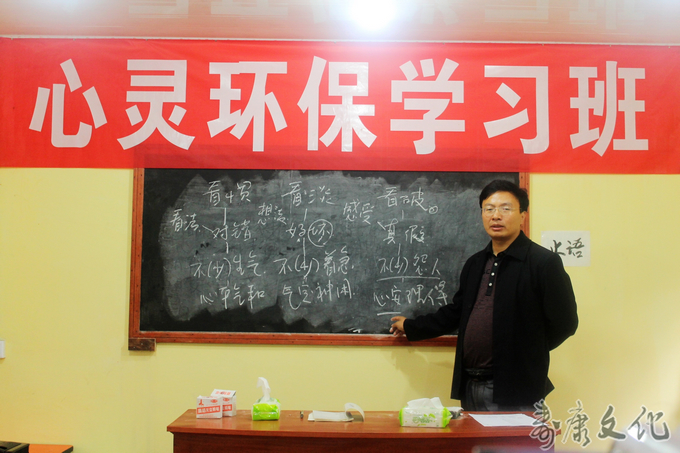 心灵环保学习班
看 看 看破
看法 想法 感受
对错 好(坏) 真假
不(少)生气 不(少)着急 不(少)怨人
心平气和 气定神闲 心安理得
止语
寿康文化